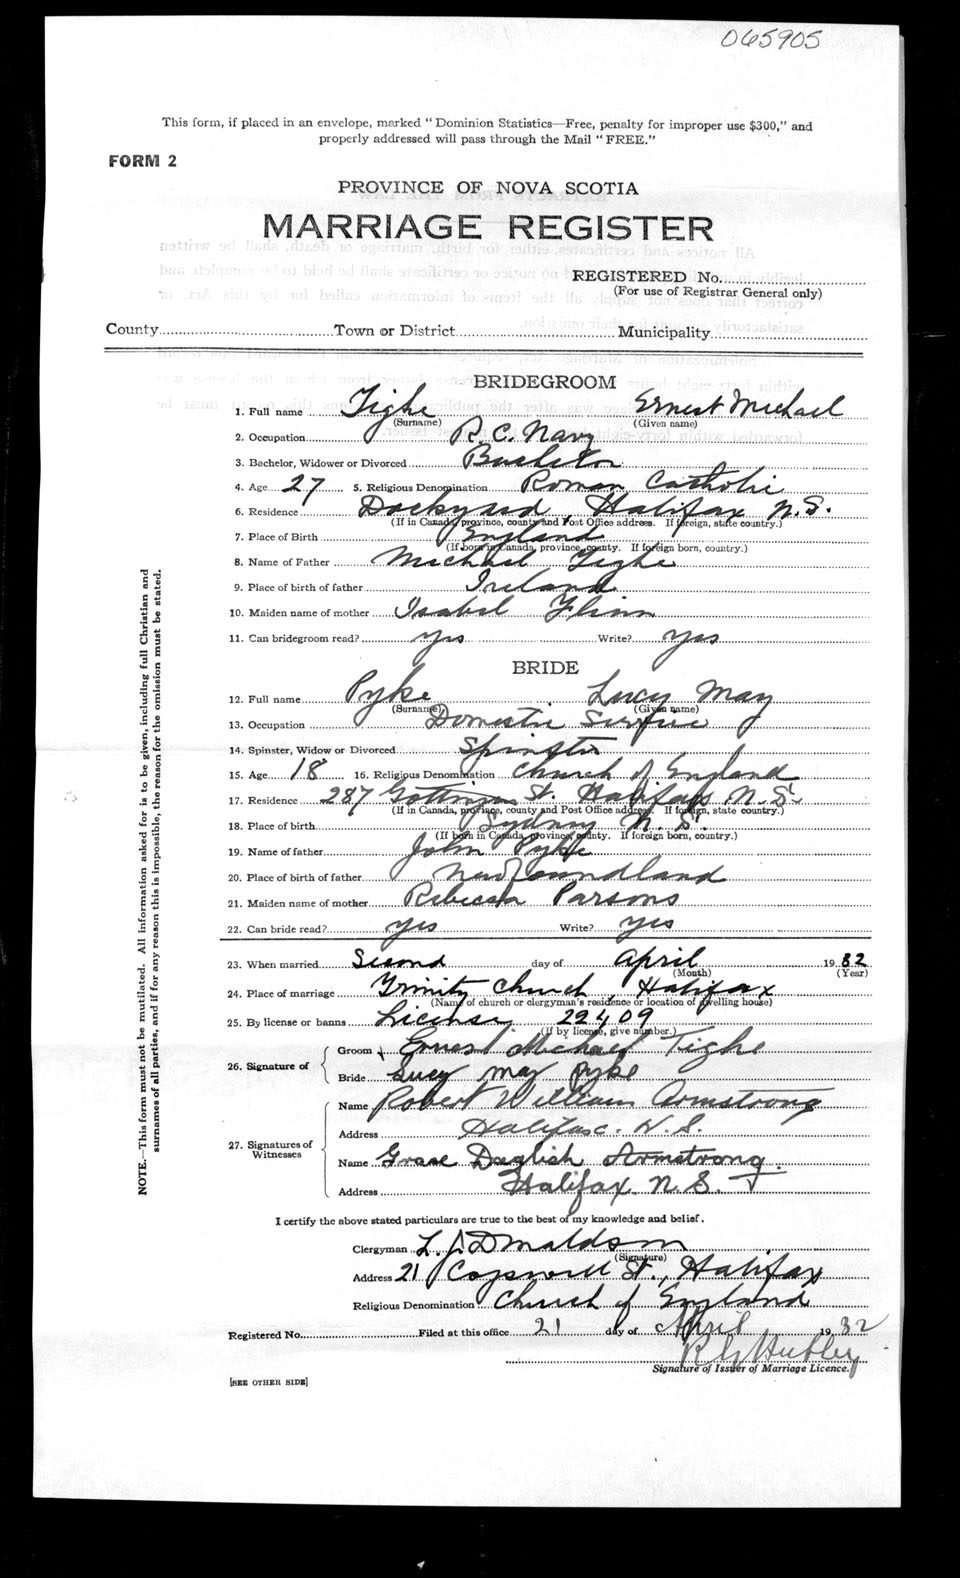 065905
This form, if placed in an envelope, marked "Dominion Statistics—Free, penalty for improper use $300," and
properly addressed will pass through the Mail "FREE."
FORM 2
PROVINCE OF NOVA SCOTIA
MARRIAGE REGISTER
REGISTERED No.
(For use of Registrar General only)
County Town or District Municipality
BRIDEGROOM
1. Full name Tighe Ernest Michael
(Surname) (Given name)
2. Occupation R. C. Navy
3. Bachelor, Widower or Divorced Bachelor
4. Age 27 5. Religious Denomination Roman Catholic
6. Residence Dockyard, Halifax N.S.
(If in Canada, province, county and Post Office address. If foreign, state country.)
7. Place of Birth England
(If born in Canada, province, county. If foreign born, country.)
8. Name of Father Michael Tighe
9. Place of birth of father Ireland
10. Maiden name of mother Isabel Flinn
11. Can bridegroom read? yes Write? yes
BRIDE
12. Full name Pyke, Lucy May
(Surname) (Given name)
13. Occupation Domestic Service
14. Spinster, Widow or Divorced Spinster
15. Age 18 16. Religious Denomination Church of England
17. Residence 287 Gottingen St. Halifax N.S.
(If in Canada, province, county and Post Office address. If foreign, state country.)
18. Place of birth Sydney N.S.
(If born in Canada, province, county. If foreign born, country.)
19. Name of father John Pyke
20. Place of birth of father Newfoundland
21. Maiden name of mother Rebecca Parsons
22. Can bride read? yes Write? yes
23. When married Second day of April 1932
(Month) (Year)
24. Place of marriage Trinity Church, Halifax
(Name of church or clergyman's residence or location of dwelling house)
25. By license or banns License 22409
(If by license, give number.)
26. Signature of
Groom Ernest Michael Tighe
Bride Lucy May Pyke
27. Signatures of Witnesses
Name Robert William Armstrong
Address Halifax. N.S.
Name Grace Daglish Armstrong.
Address Halifax N.S.
I certify the above stated particulars are true to the best of my knowledge and belief.
Clergyman L. J. Donaldson
(Signature)
Address 21 Cogswell St., Halifax
Religious Denomination Church of England
Registered No. Filed at this office 21 day of April 1932
R G Hubley
Signature of Issuer of Marriage Licence.
[SEE OTHER SIDE]
NOTE.—This form must not be mutilated. All information asked for is to be given, including full Christian and
surnames of all parties, and if for any reason this is impossible, the reason for the omission must be stated.